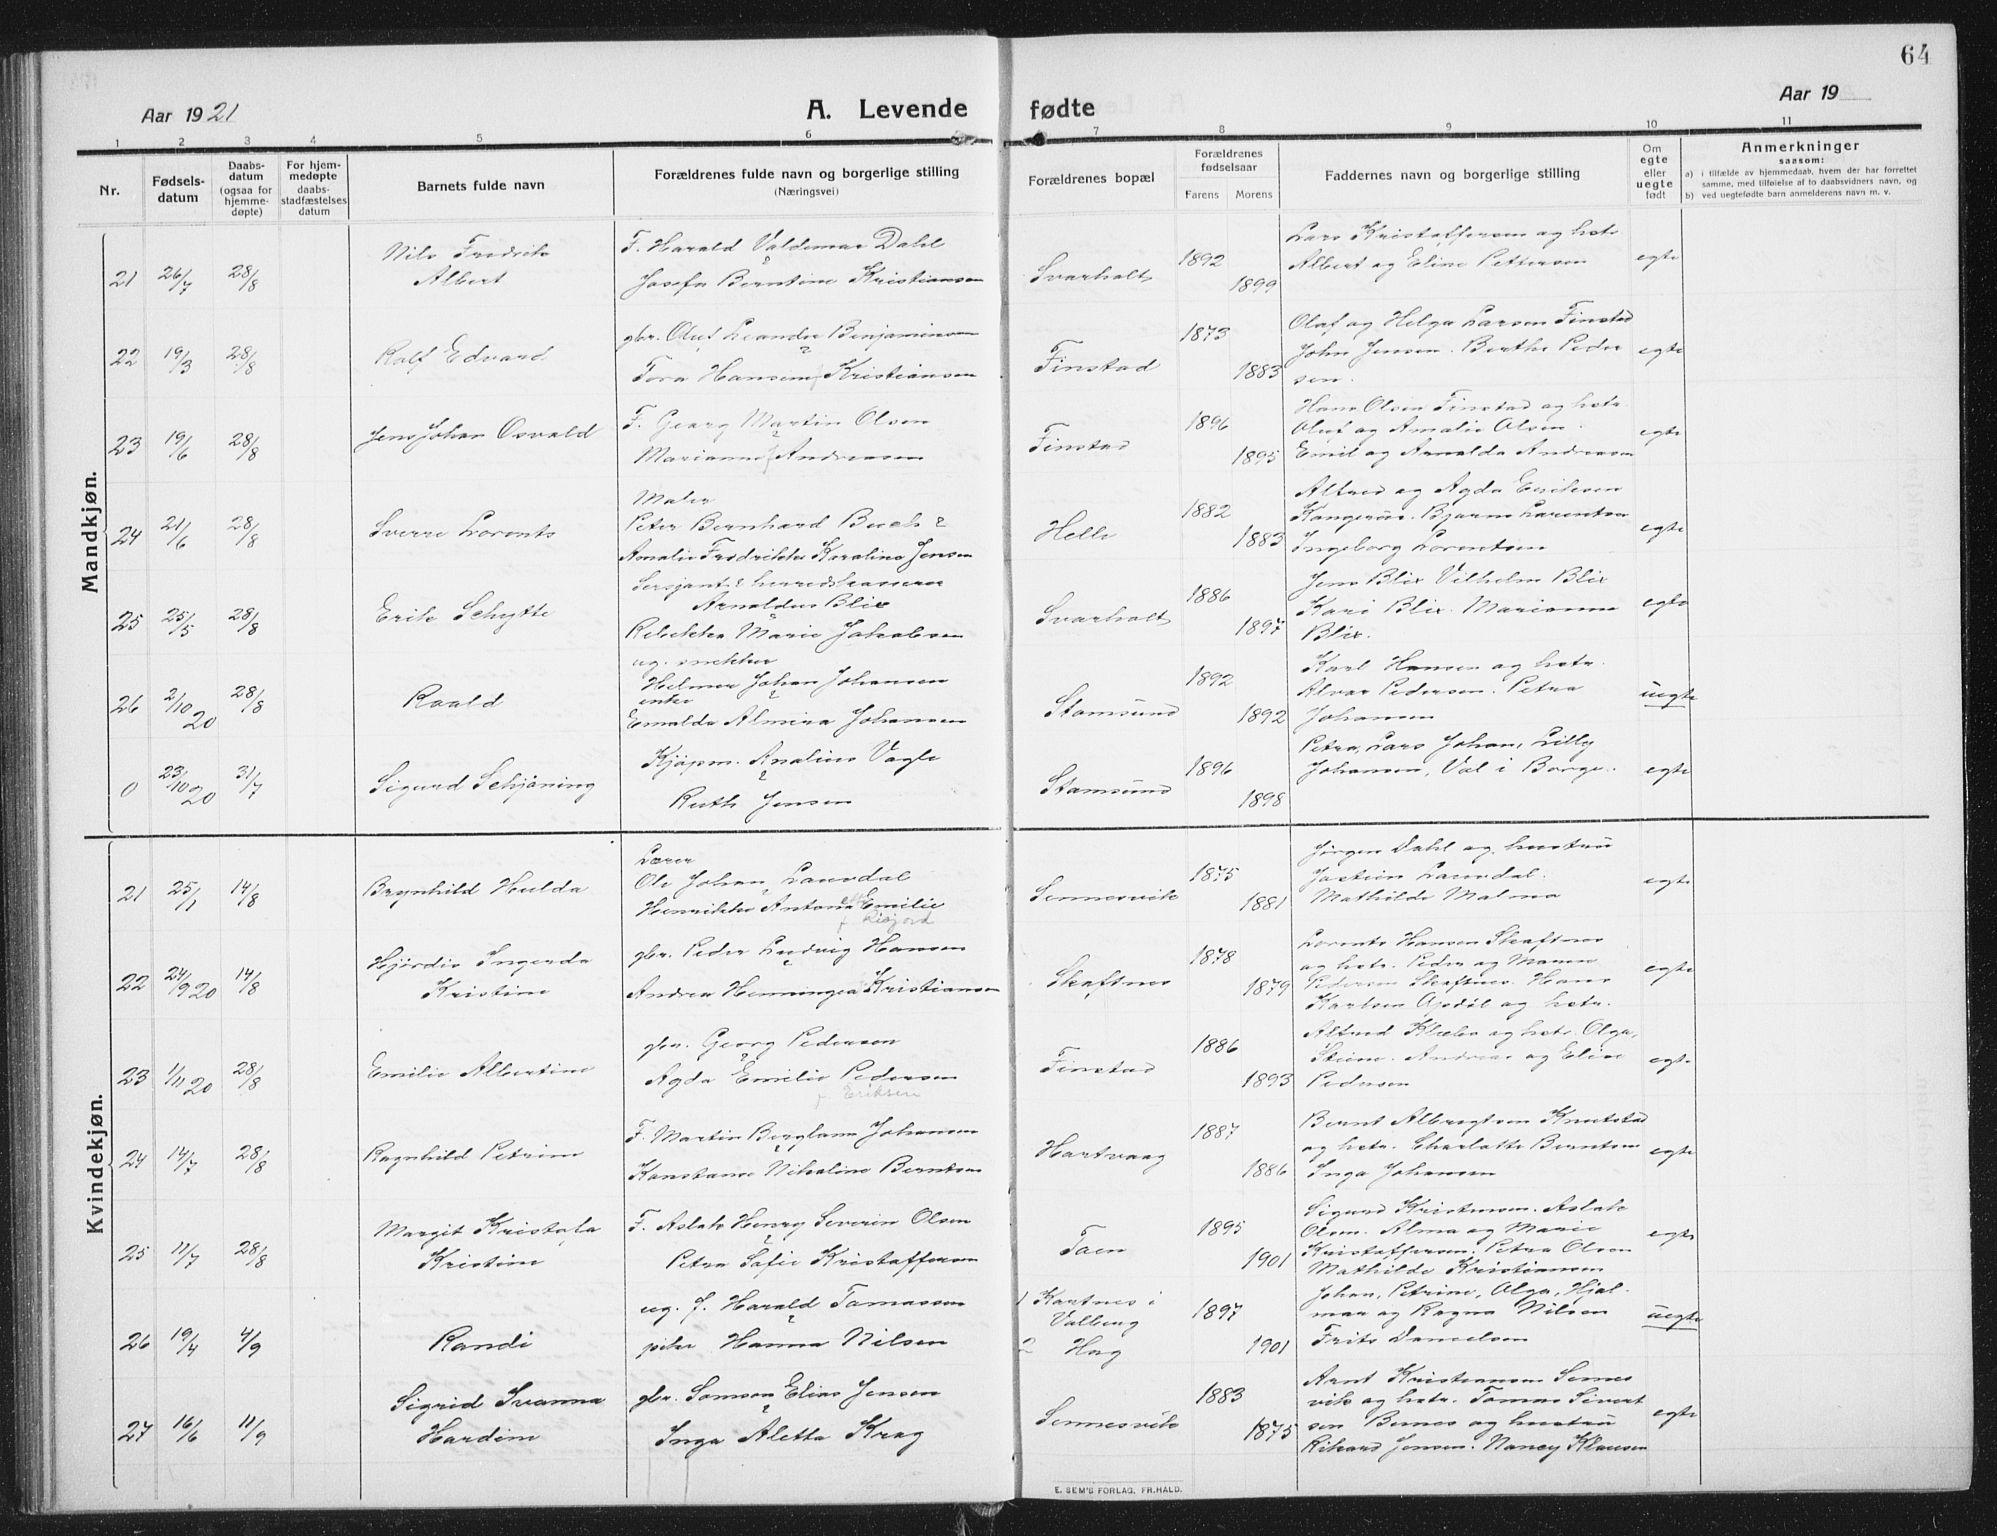 64
Aar 1921
A. Levende fødte
Aar 19
1 2 3 4 5 6 7 8 9 10 11
Nr.
Fødsels-
datum
Daabs-
datum
(ogsaa for
hjemme-
døpte)
For hjem-
medøpte
daabs-
stadfæstelses
datum
Barnets fulde navn
Forældrenes fulde navn og borgerlige stilling
(Næringsvei)
Forældrenes bopæl
Forældrenes
fødselsaar
Farens Morens
Faddernes navn og borgerlige stilling
Om
egte
eller
uegte
født
Anmerkninger
saasom:
a) i tilfælde av hjemmedaab, hvem der har forrettet
samme, med tilføielse af to daabsvidners navn, og
b) ved uegtefødte barn anmelderens navn m. v.
Mandkjøn.
21 26/7 28/8
Nils Fredrik
Albert
F. Harald Valdemar Dahl
&
Josefa Berntine Kristiansen
Svarholt
1892
1899
Lars Kristoffersen og hstr.
Albert og Eline Pettersen
egte
22 19/3 28/8
Rolf Edvard
gbr. Oluf Leander Benjaminsen
&
Tora Hansine f. Kristiansen
Finstad
1873
1883
Olaf og Helga Larsen Finstad
John Jensen. Berthe Peder
sen.
egte
23 19/6 28/8
Jens Johan Osvald
F. Georg Martin Olsen
&
Marianne f. Andreasen
Finstad
1896
1895
Hans Olsen Finstad og hstr.
Oluf og Amalie Olsen.
Emil og Arnolda Andreasen
egte
24 21/6 28/8
Sverre Lorents
Maler
Peter Bernhard Buch &
Amalie Fredrikke Karoline Jensen
Helle
1882
1883
Alfred og Agda Eriksen
Bjarne Lorentsen
Ingeborg Lorentsen
egte
25 25/5 28/8
Erik Schytte
Sersjant & herredskasserer
Arnoldus Blix
&
Rebekka Marie Jakobsen
Svarholt
1886
1897
Jens Blix Vilhelm Blix
Kari Blix. Marianne
Blix.
egte
26 2/10 20 28/8
Roald
ug. snekker
Helmer Johan Johansen
&
enke
Emalda Almira Johansen
Stamsund
1892
1892
Karl Hansen og hstr.
Alvar Pedersen. Petra
Johansen
uegte
0 23/10 20 31/7
Sigurd Schjöning
Kjøpm. Analius Vagle
&
Ruth Jensen
Stamsund
1896
1898
Petra, Lars Johan, Lilly
Johansen, Val i Borge.
egte
Kvindekjøn.
21 25/1 14/8
Brynhild Hulda
Lærer
Ole Johan Laundal
&
Henrikke Antona Emilie
f Risjord
Sennesvik
1875
1881
Jørgen Dahl og hustru
Jostein Laundal.
Mathilde Malmo
egte
22 24/9 20 14/8
Hjördis Ingerda
Kristine
gbr. Peder Ludvig Hansen
&
Andrea Henningea Kristiansen
Skaftnes
1878
1879
Lorents Hansen Skaftnes
og hstr. Peder og Maren
Pedersen Skaftnes. Hans
Karlsen Opdöl og hstr.
egte
23 1/11 20 28/8
Emilie Albertine
gbr. Georg Pedersen
&
Agda Emilie Pedersen
f Eriksen
Finstad
1886
1893
Alfred Klæbo og hstr. Olga,
Steine. Andreas og Eline
Pedersen
egte
24 14/7 28/8
Ragnhild Petrine
F. Martin Berglann Johansen
&
Konstanse Nikoline Berntsen
Hartvaag
1887
1886
Bernt Albregtsen Knutstad
og hstr. Charlotte Berntsen
Inga Johansen
egte
25 11/7 28/8
Margit Kristofa
Kristine
F. Aslak Henry Severin Olsen
&
Petra Sofie Kristoffersen
Toen
1895
1901
Sigurd Kristensen. Aslak
Olsen. Alma og Marie
Kristoffersen. Petra Olsen
Mathilde Kristiansen
egte
26 19/4 4/9
Randi
ug. f. Harald Tomassen
&
pike Hanna Nilsen
1 Kartnes i
Valberg
2 Hag
1897
1901
Johan, Petrine, Olga, Hjal-
mar og Ragna Nilsen
Frits Danielsen
uegte
27 16/6 11/9
Sigrid Svanna
Hardine
gbr. Samson Elias Jensen
&
Inga Aletta Krog
Sennesvik
1883
1875
Arnt Kristiansen Sennes
vik og hstr. Tomas Sivert
sen Bernes og hustru
Rikard Jensen. Nancy Klausen
egte
E. SEM'S FORLAG, FR.HALD.